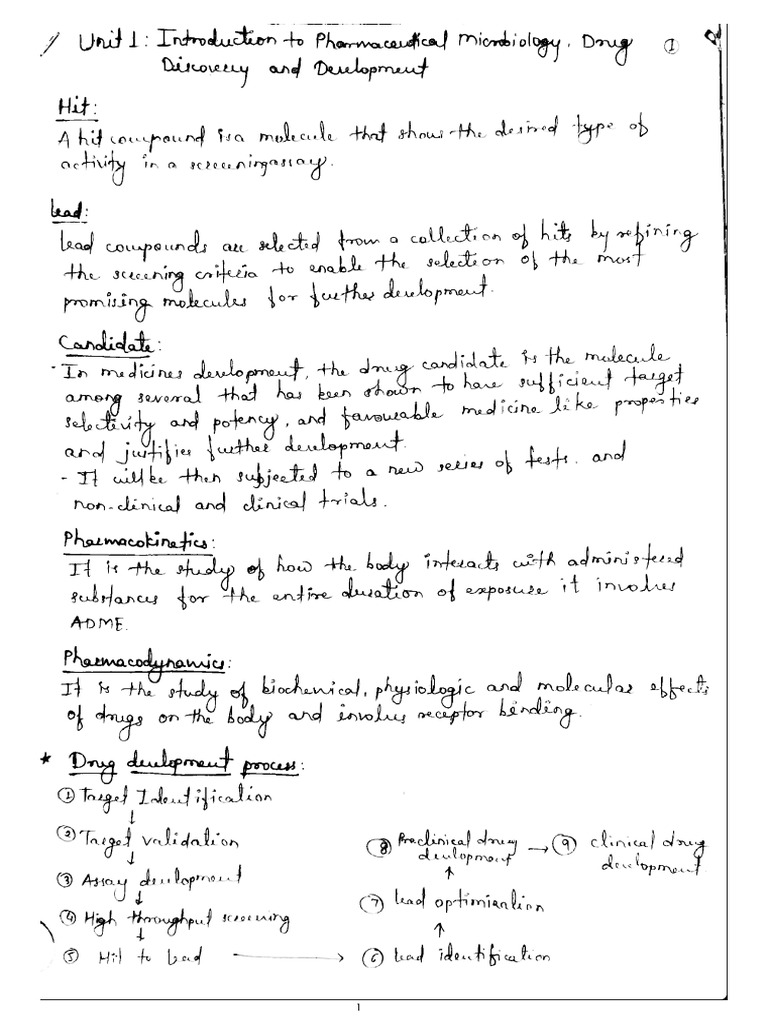 Unit 1: Introduction to Pharmaceutical Microbiology, Drug ①
Discovery and Development
Hit:
A hit compound is a molecule that shows the desired type of
activity in a screening assay.
Lead:
Lead compounds are selected from a collection of hits by refining
the screening criteria to enable the selection of the most
promising molecules for further development.
Candidate:
- In medicines development, the drug candidate is the molecule
among several that has been shown to have sufficient target
selectivity and potency, and favourable medicine like properties
and justifies further development.
- It will be then subjected to a new series of tests. and
non-clinical and clinical trials.
Pharmacokinetics:
It is the study of how the body interacts with administered
substances for the entire duration of exposure it involves
ADME.
Pharmacodynamics:
It is the study of biochemical, physiologic and molecular effects
of drugs on the body and involves receptor binding.
* Drug development process:
① Target Identification
↓
② Target validation
↓
③ Assay development
↓
④ High throughput screening
↓
⑤ Hit to Lead → ⑥ Lead identification
↑
⑦ Lead optimization
↑
⑧ Preclinical drug
development → ⑨ Clinical drug
development
1